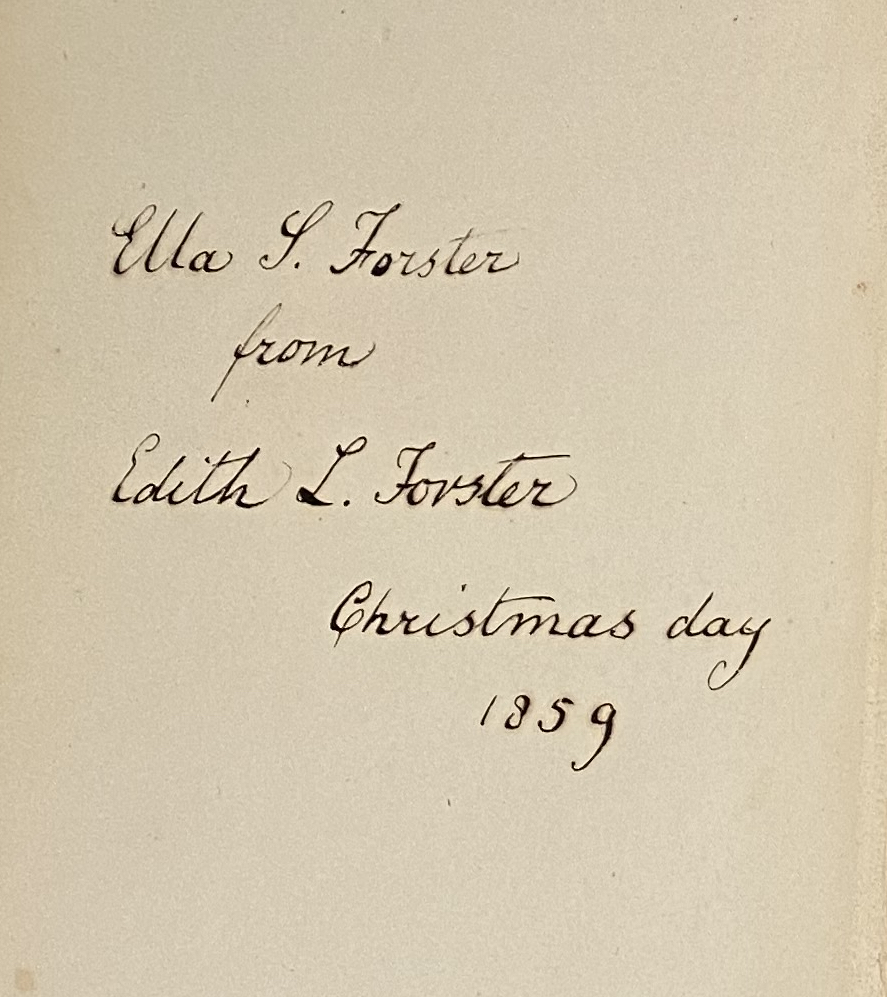 Ella S. Forster
from
Edith L. Forster
Christmas day
1859